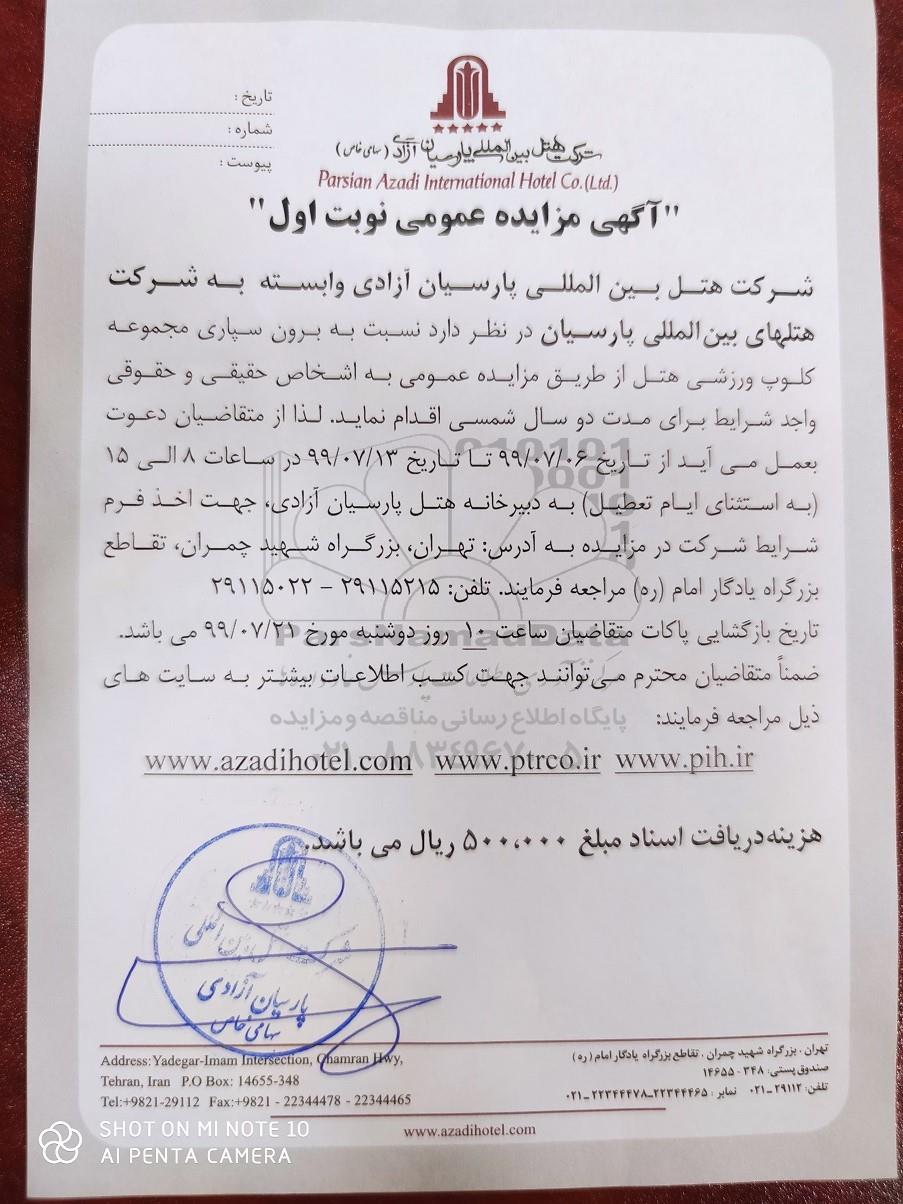 تاریخ :
شماره :
پیوست :
شرکت هتل بین المللی پارسیان آزادی (سهامی خاص)
Parsian Azadi International Hotel Co.(Ltd.)
"آگهی مزایده عمومی نوبت اول"
شرکت هتل بین المللی پارسیان آزادی وابسته به شرکت
هتلهای بین‌المللی پارسیان در نظر دارد نسبت به برون سپاری مجموعه
کلوپ ورزشی هتل از طریق مزایده عمومی به اشخاص حقیقی و حقوقی
واجد شرایط برای مدت دو سال شمسی اقدام نماید. لذا از متقاضیان دعوت
بعمل می آید از تاریخ ۹۹/۰۷/۰۶ تا تاریخ ۹۹/۰۷/۱۳ در ساعات ۸ الی ۱۵
(به استثنای ایام تعطیل) به دبیرخانه هتل پارسیان آزادی، جهت اخذ فرم
شرایط شرکت در مزایده به آدرس: تهران، بزرگراه شهید چمران، تقاطع
بزرگراه یادگار امام (ره) مراجعه فرمایند. تلفن: ۲۹۱۱۵۲۱۵ – ۲۹۱۱۵۰۲۲
تاریخ بازگشایی پاکات متقاضیان ساعت ۱۰ روز دوشنبه مورخ ۹۹/۰۷/۲۱ می باشد.
ضمناً متقاضیان محترم می‌توانند جهت کسب اطلاعات بیشتر به سایت های
ذیل مراجعه فرمایند:
www.azadihotel.com www.ptrco.ir www.pih.ir
هزینه دریافت اسناد مبلغ ۵۰۰،۰۰۰ ریال می باشد.
ParsNamadData
پایگاه اطلاع رسانی مناقصه و مزایده
شرکت هتل بین المللی
پارسیان آزادی
سهامی خاص
Address:Yadegar-Imam Intersection, Chamran Hwy,
Tehran, Iran P.O Box: 14655-348
Tel:+9821-29112 Fax:+9821 - 22344478 - 22344465
تهران . بزرگراه شهید چمران . تقاطع بزرگراه یادگار امام (ره)
صندوق پستی: ۳۴۸ - ۱۴۶۵۵
تلفن: ۲۹۱۱۲-۰۲۱ نمابر: ۲۲۳۴۴۴۶۵-۲۲۳۴۴۴۷۸-۰۲۱
www.azadihotel.com
SHOT ON MI NOTE 10
AI PENTA CAMERA